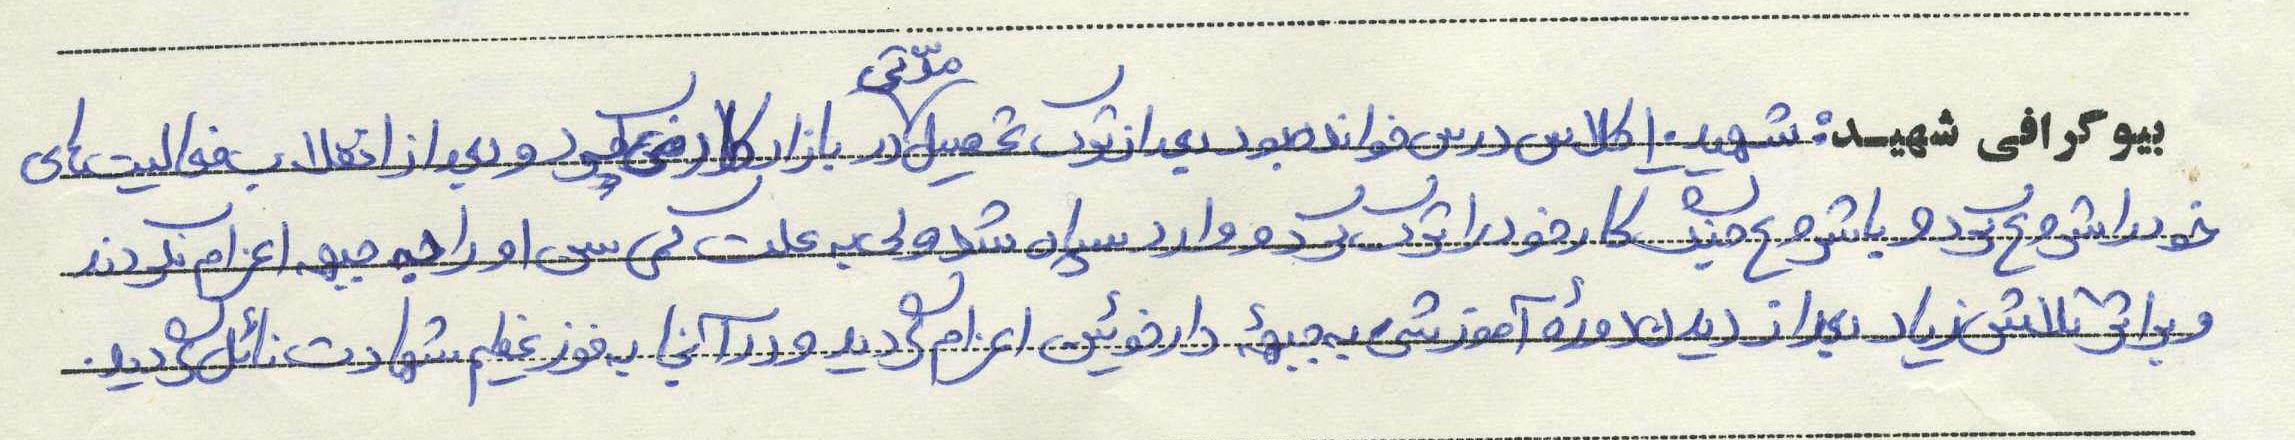 بیوگرافی شهید: شهید ۱۰ کلاس درس خوانده بود بعد از ترک تحصیل مدّتی در بازار کار می‌کرد و بعد از انقلاب فعالیت‌های
خود را شروع کرد و با شروع جنگ کار خود را ترک کرده و وارد سپاه شد ولی به علت کمی سن او را به جبهه اعزام نکردند
و بر اثر تلاش زیاد بعد از دیدن دورهٔ آموزشی به جبههٔ دارخوئین اعزام گردید و در آنجا به فوز عظیم شهادت نائل گردید.